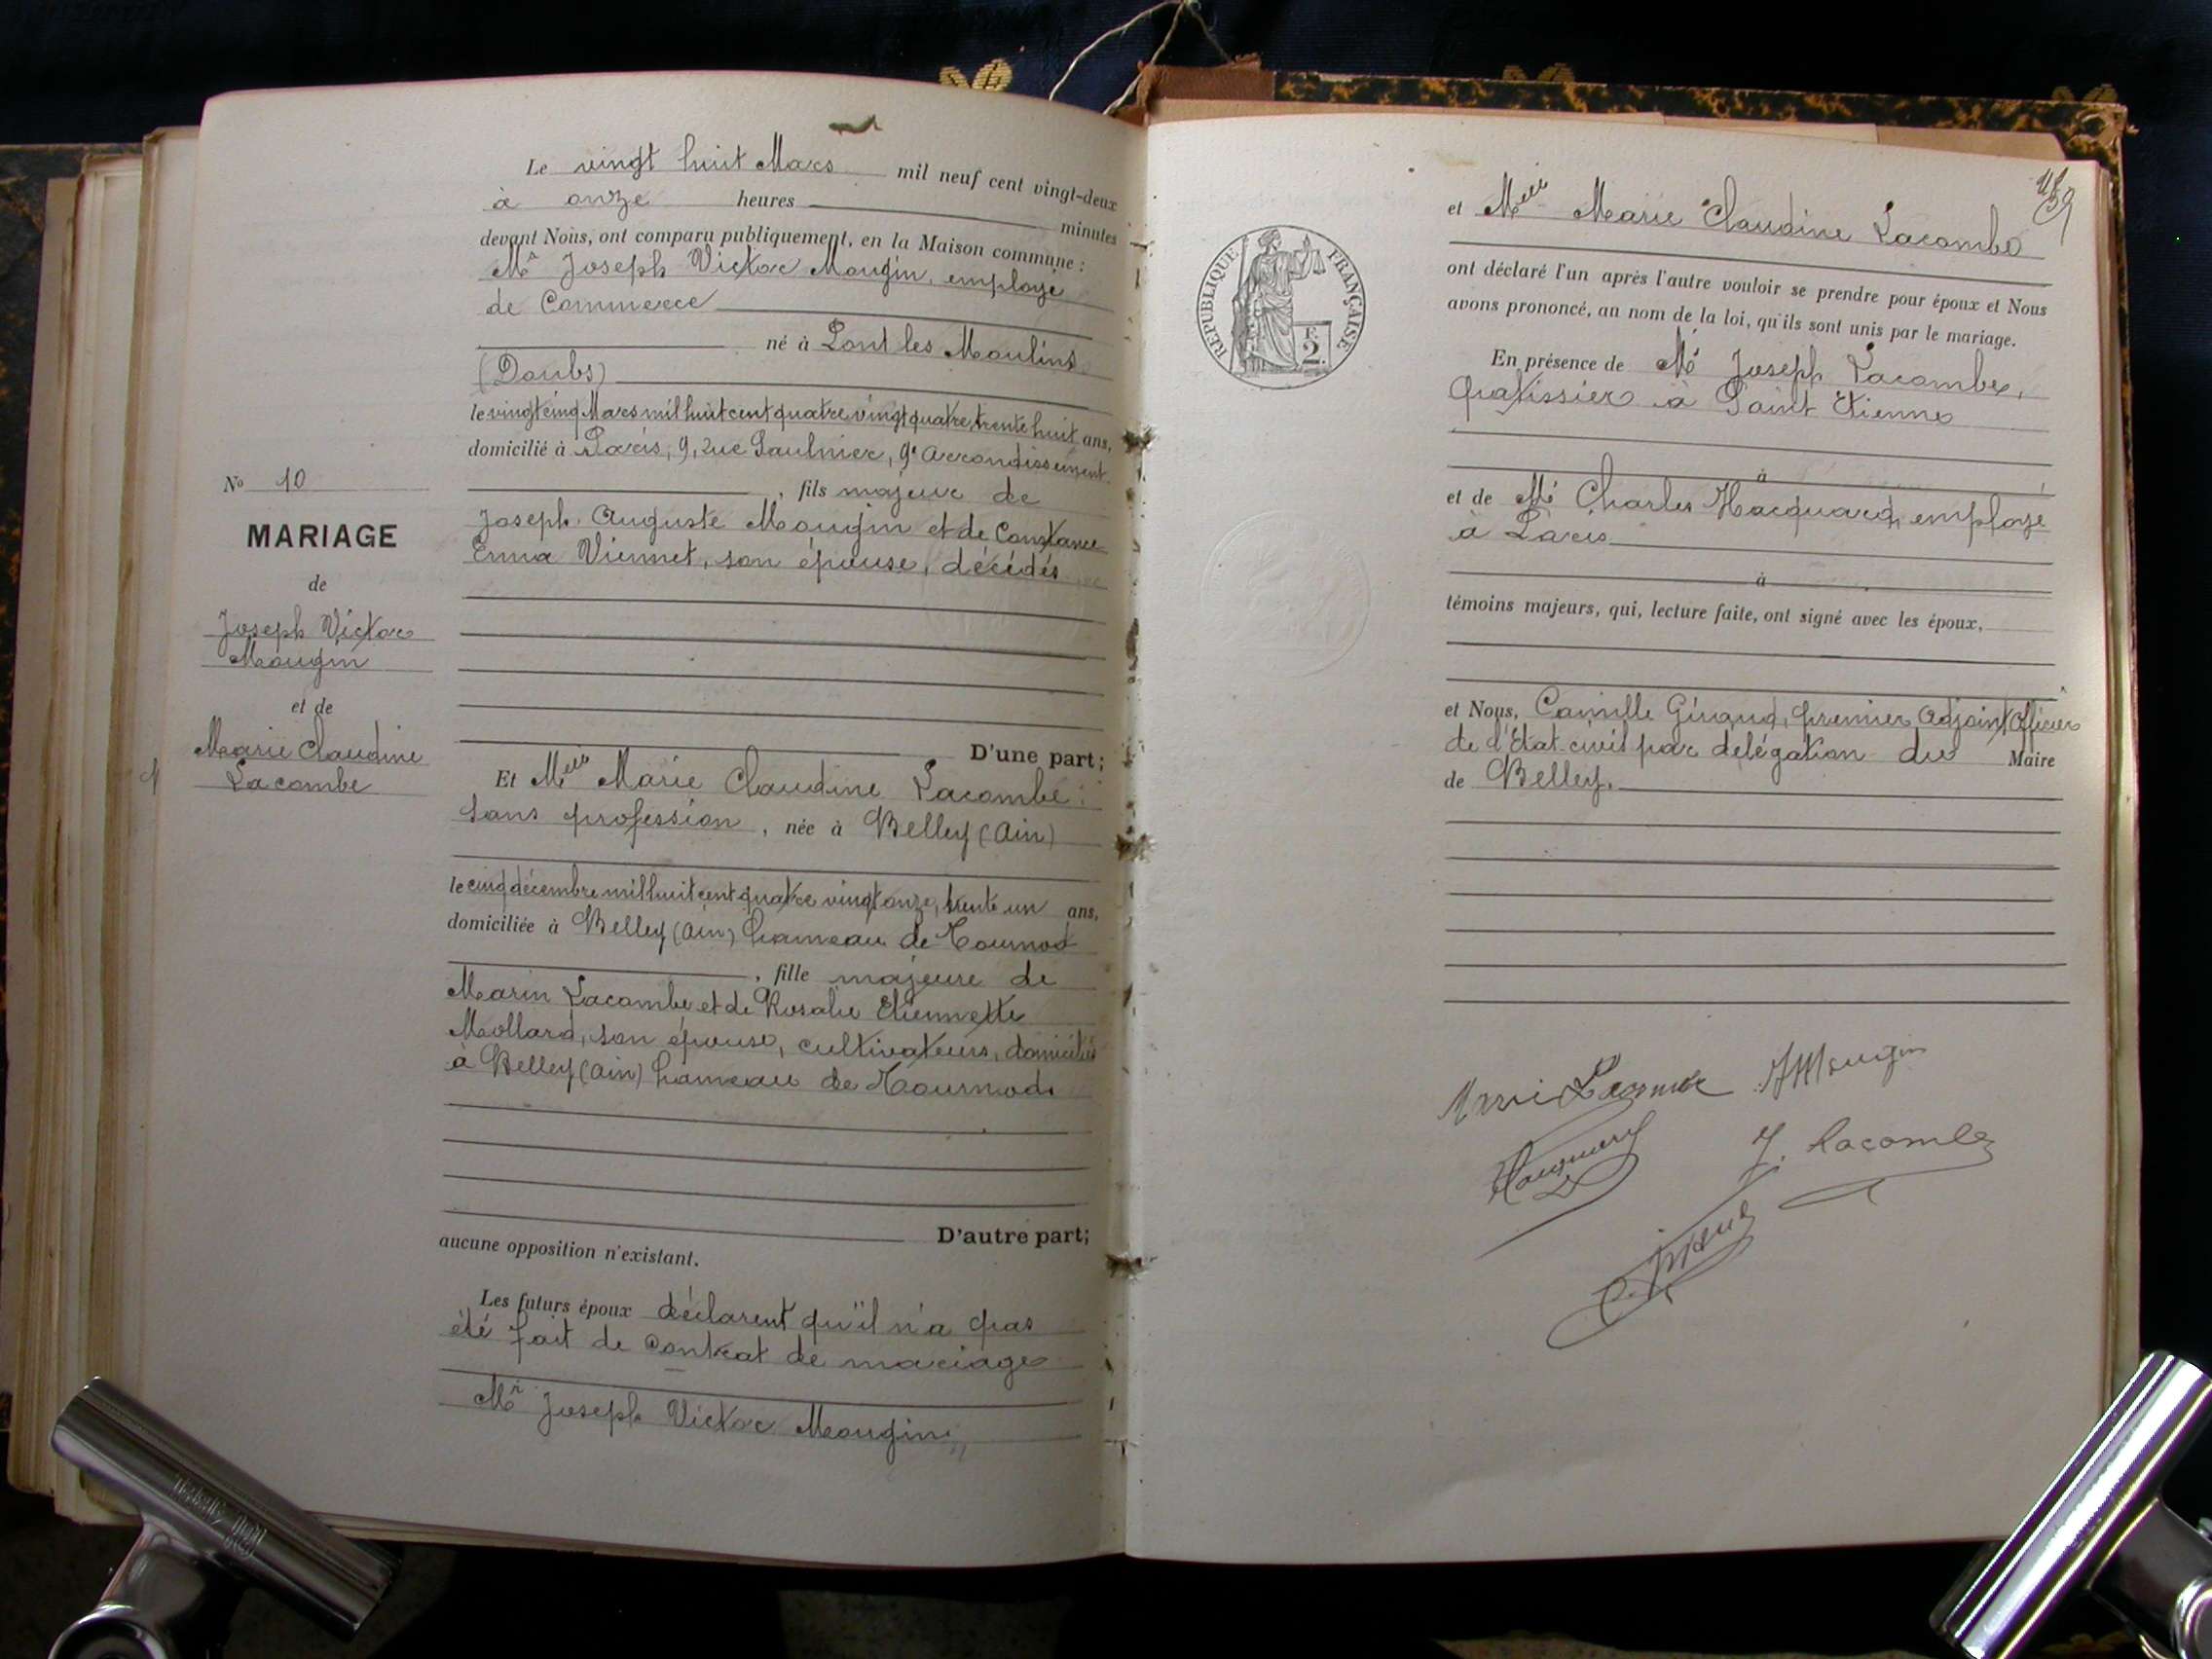 N° 10
MARIAGE
de
Joseph Victor
Mougin
et de
Marie Claudine
Lacombe
Le vingt huit Mars mil neuf cent vingt-deux
à onze heures minutes
devant Nous, ont comparu publiquement, en la Maison commune :
Mr Joseph Victor Mougin, employé
de Commerce
né à Pont les Moulins
(Doubs)
le vingt cinq Mars mil huit cent quatre vingt quatre, trente huit ans,
domicilié à Paris, 9, rue Saulnier, 9e Arrondissement
, fils majeur de
Joseph Auguste Mougin et de Constance
Erma Viennet, son épouse, décédés
D'une part;
Et Melle Marie Claudine Lacombe
sans profession, née à Belley (Ain)
le cinq décembre mil huit cent quatre vingt onze, trente un ans,
domiciliée à Belley (Ain) hameau de
, fille majeure de
Marin Lacombe et de Rosalie Etiennette
Mollard, son épouse, cultivateurs, domiciliés
à Belley (Ain) hameau de
D'autre part;
aucune opposition n'existant.
Les futurs époux déclarent qu'il n'a pas
été fait de contrat de mariage
Mr Joseph Victor Mougin
59
RÉPUBLIQUE FRANÇAISE
2 F.
et Melle Marie Claudine Lacombe
ont déclaré l'un après l'autre vouloir se prendre pour époux et Nous
avons prononcé, au nom de la loi, qu'ils sont unis par le mariage.
En présence de Mr Joseph Lacombe,
patissier à Saint Etienne
à
et de Mr Charles Hacquard, employé
à Paris
à
témoins majeurs, qui, lecture faite, ont signé avec les époux,
et Nous, Camille Giraud, premier Adjoint, Officier
de l'Etat-civil par délégation du Maire
de Belley.
Marie Lacombe
JMougin
Hacquard
J. Lacombe
C. Giraud